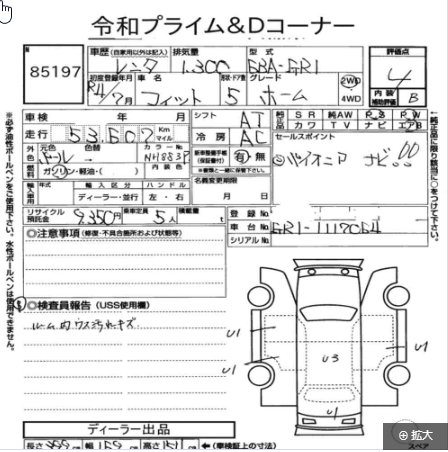 令和プライム&Dコーナー
85197
車歴 (自家用以外は記入) 排気量 型式 評価点
レンタ 1,300 6BA-GR1 4
初度登録年月 車名 形状・ドア数 グレード 2WD 4WD
R4/7月 フィット 5 ホーム
内装補助評価 B
車検 年 月 シフト AT
純正品 SR 純正AW PS PW
カワ TV ナビ エアB
走行 53,607 Km マイル 冷房 AC
セールスポイント
パイオニア ナビ!!
外色 色替 カラーNo. NH883P 有 無
燃料 ガソリン・軽油・( ) 内装色
名義変更期限
月 日
輸入車 年式 輸入区分 ハンドル
ディーラー・並行 左・右
リサイクル預託金 9,350円 乗車定員 5人 積載量 t
登録No.
車台No. GR1-1117064
シリアルNo.
◎注意事項 (修復・不具合箇所および状態等)
◎検査員報告 (USS使用欄)
ルーム内ウス汚れキズ
U1
U1
U3
U1
U1
ディーラー出品
長さ 399 cm 幅 169 cm 高さ 151 cm ←(車検証上の寸法)
スペア
拡大
※必ず油性ボールペンをご使用下さい。水性ボールペンは使用できません。